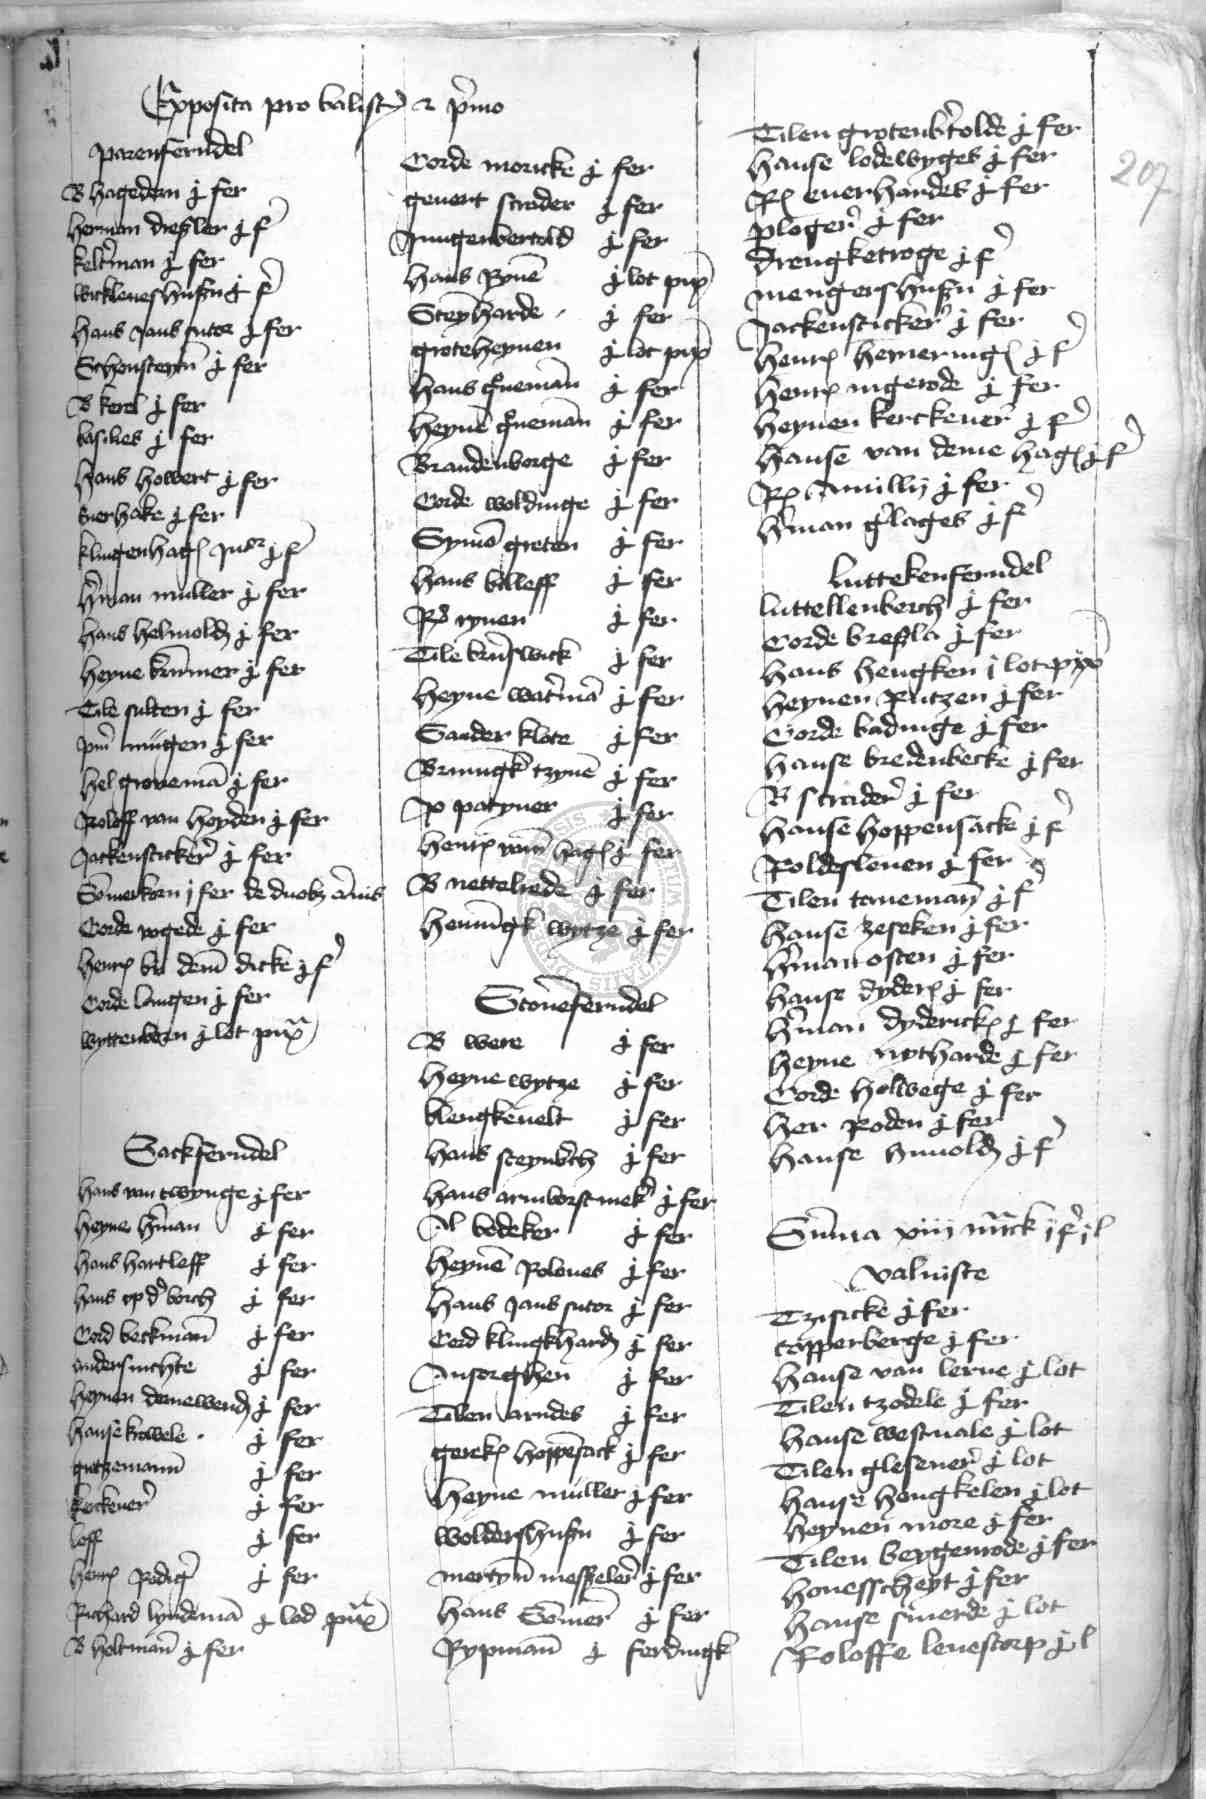 Exposita pro balist' 2 p'mo
parenferndel
B hagedorn j fer
herman dreszler j f'
kelt'man j fer
wickleueshuszen j f'
hans Jans sutor j fer
Schonsteyn j fer
B kerel j fer
basilies j fer
hans howert j fer
buerhake j fer
klingenhag' Jut' j f'
h'man muller j fer
hans helmold j fer
heyne brumer j fer
Tile sulten j fer
mugen j fer
hel groneman j fer
Roloff van hoyden j fer
Jackensticker' j fer
Somerkorn j fer de duob3 annis
Corde vogede j fer
henr' bu dem dicke j f'
Corde langen j fer
wyttenborn j lot pux
Sackferndel
hans van twynge j fer
heyne h'man j fer
hans hartleff j fer
hans op d' borch j fer
Cord beckman j fer
andersnichte j fer
heynen demewend' j fer
hanse krowele j fer
gutzemann j fer
kerckener' j fer
loff j fer
henr' Rodig' j fer
Richard lyndeman j lod pux
B holtman j fer
Corde moricke j fer
geuert scrader j fer
Jungenbertold j fer
hans Rynen j lot pux
Steynharde j fer
groteheynen j lot pux
hans queman j fer
heyne queman j fer
Brandenborge j fer
Corde woldinge j fer
Symon greten j fer
hans bolleff j fer
Rd rynen j fer
Tile brunswick j fer
heyne wat'man j fer
Sander klote j fer
Bruningk tzynen j fer
Jo patyner j fer
henr' vam hag' j fer
B nettelrede j fer
henningk wytze j fer
Stoneferndel
B were j fer
heyne wytze j fer
blengkeuelt j fer
hans steynb'ch j fer
hans armborstmek' j fer
Al bodeker j fer
heynen Roloues j fer
hans Jans sutor j fer
Cord klingkhard' j fer
Ansorghen j fer
Tilen arndes j fer
gerek' hoppesack j fer
heyne muller j fer
woldershuszen j fer
mertyn meszeler' j fer
hans Somer' j fer
Rypman j ferdingk
Tilen grotenb'tolde j fer
hanse lodewyges j fer
R' euerhardes j fer
ploger' j fer
drengketroge j f'
mengershuszen j fer
Jackensticker' j fer
henr' hemering' j f'
henr' ingerode j fer
heynen kerckener' j f'
hanse van deme hag' j f'
R' Amilly j fer
h'man g'lages j f'
luttekenferndel
luttellenberch j fer
Corde breszla j fer
hans hengken j lot pux
heynen Rutzen j fer
Corde badinge j fer
hanse bredenbecke j fer
B scrader' j fer
hanse hoppensacke j f'
Roldesleuen j fer
Tilen toneman j f'
hanse zeseken j fer
h'man osten j fer
hanse dyder' j fer
h'man dyderick' j fer
heyne notharde j fer
Corde holwege j fer
her Roden j fer
hanse hunold' j f'
Summa xiiij m'ck j f' j l
valuiste
Tzisicke j fer
topperberge j fer
hanse van lerne j lot
Tilen tzodele j fer
hanse westuale j lot
Tilen glesener' j lot
hanse hengkelen j lot
heynen more j fer
Tilen beygerrode j fer
honesscheyt j fer
hanse smerde j lot
Roloffe leuestorp j l
207